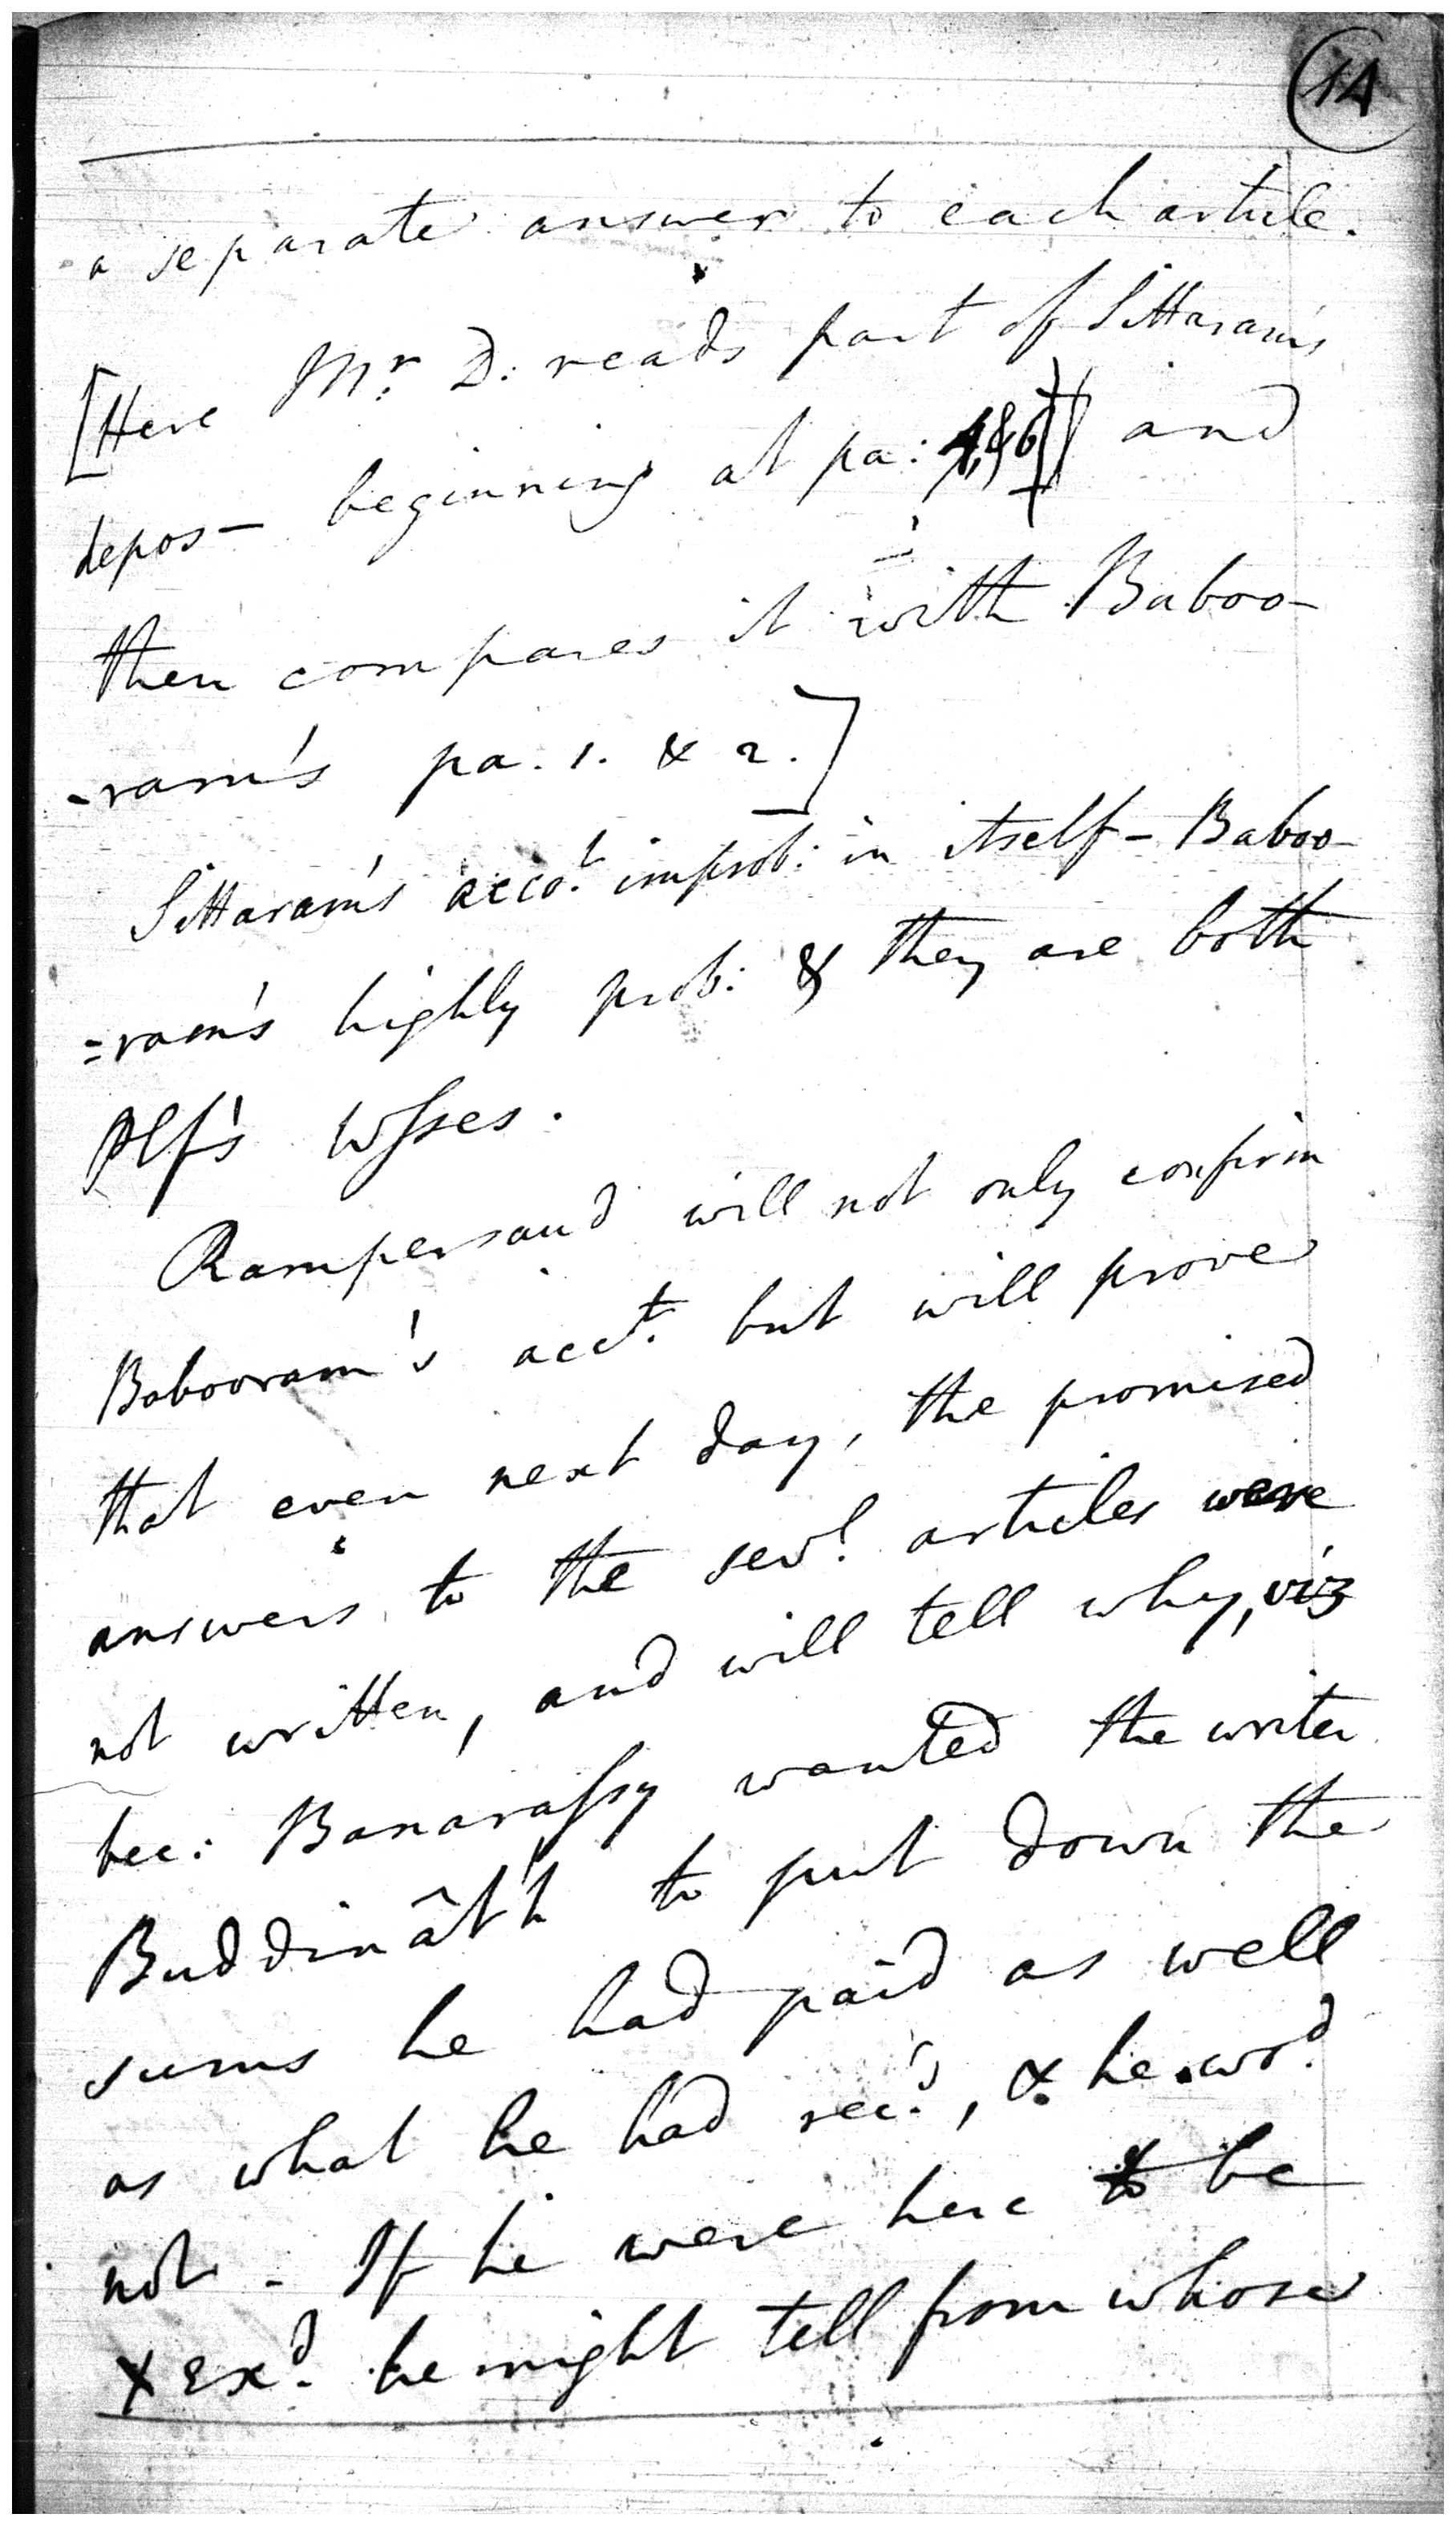 14
a separate answer to each article.
[Here Mr. D: reads part of Sittaram's
depos— beginning at pa: and
then compares it with Baboo-
-ram's pa. 1. & 2.]
Sittaram's acco.t improb: in itself — Baboo-
=ram's highly prob: & they are both
Plf's wſses.
Rampersaud will not only confirm
Babooram's acct. but will prove
that even next day, the promised
answers to the sevl. articles were
not written, and will tell why, viz
bec: Banaraſsy wanted the writer
Buddinâth to put down the
sums he had paid as well
as what he had rec.d, & he wo.d
not - If he were here to be
X Ex.d he might tell from whose